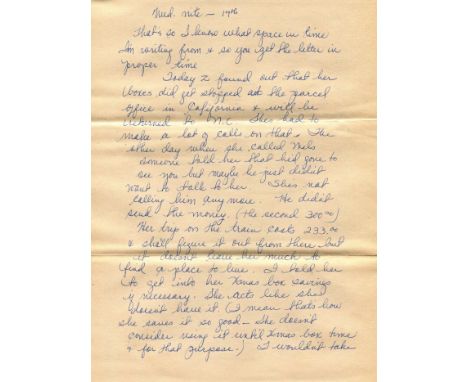 Wed. nite - 19th
That's so I know what space in time
I'm writing from & so you get the letter in
proper time
Today I found out that her
boxes did get stopped at the parcel
office in California & will be
returned to N.C. She's had to
make a lot of calls on that. The
other day when she called Mels
someone told her that he'd gone to
see you but maybe he just didn't
want to talk to her. She's not
calling him any more. He didn't
send the money. (the second 300.00)
Her trip on the train costs 233.00
& she'll figure it out from there but
it doesn't leave her much to
find a place to live. I told her
to get into her Xmas box savings
if necessary. She acts like she
doesn't have it. (I mean that's how
she saves it so good - She doesn't
consider using it until Xmas box time
& for that purpose.) I wouldn't take